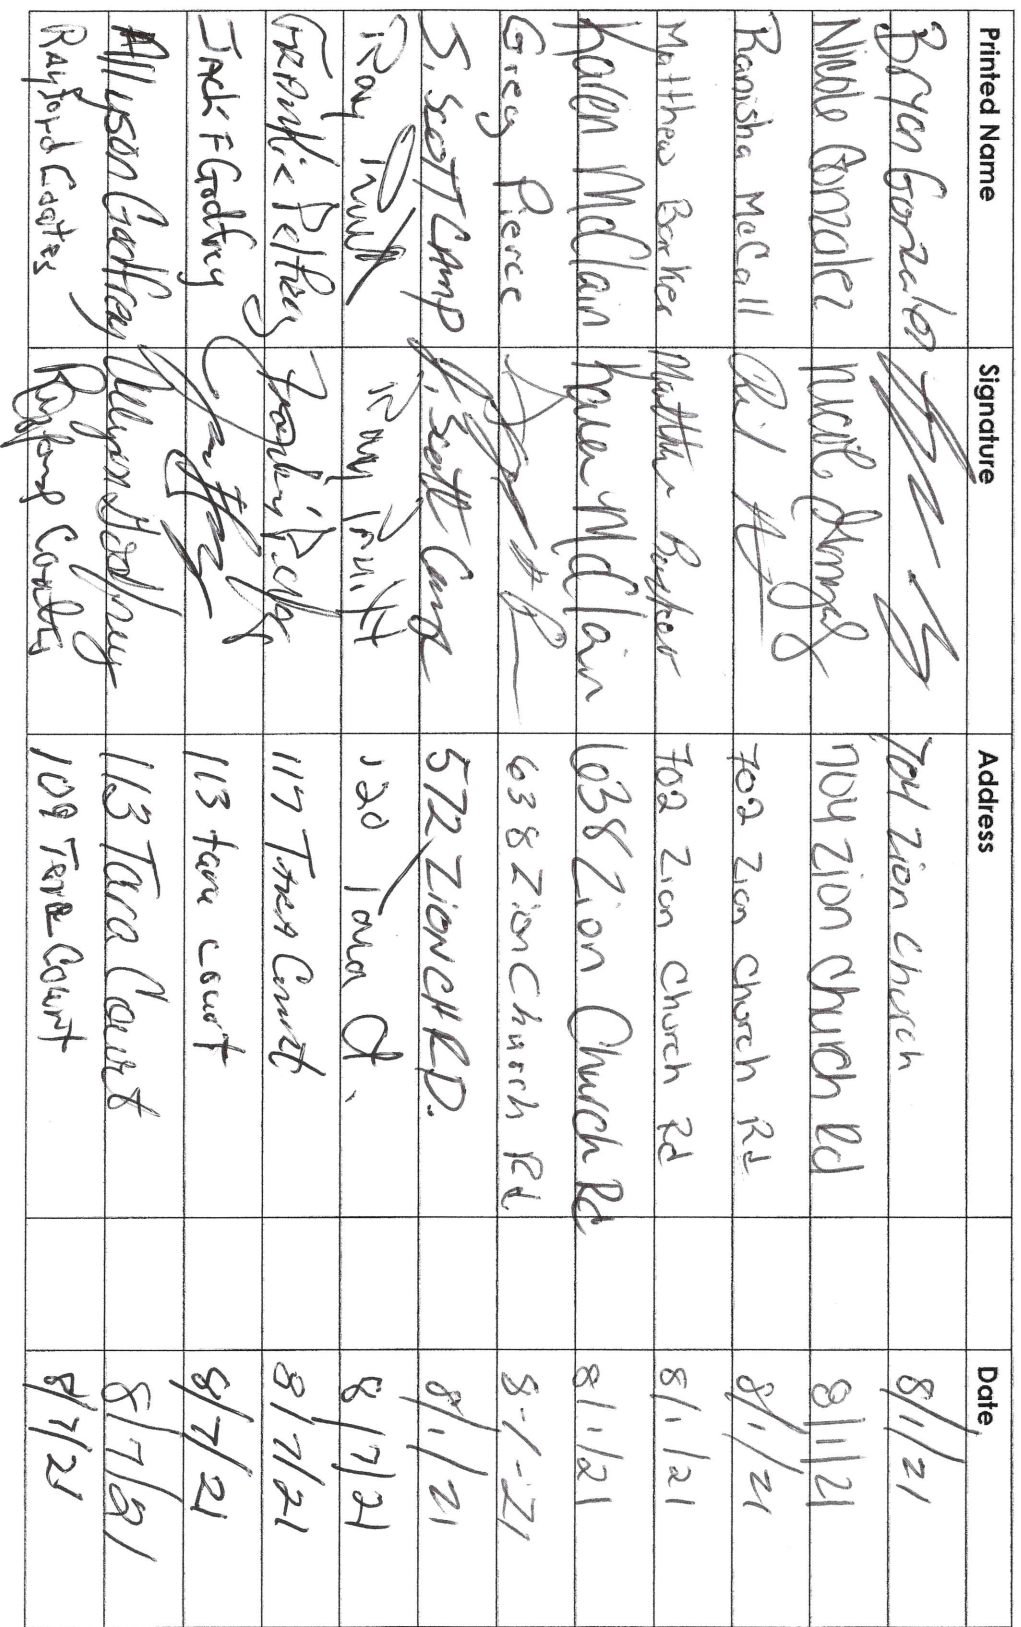 Printed Name Signature Address Date
Bryan Gonzalez 704 Zion Church 8/1/21
Nicole Gonzalez Nicole Gonzalez 704 Zion Church Rd 8/1/21
Ranisha McCall 702 Zion Church Rd 8/1/21
Matthew Barker Matthew Barker 702 Zion Church Rd 8/1/21
Karen McClain Karen McClain 638 Zion Church Rd 8/1/21
Greg Pierce 638 Zion Church Rd 8-1-21
S. SCOTT CAMP S. Scott Camp 572 ZION CH RD. 8/1/21
Ray Pruitt Ray Pruitt 120 Tara Ct. 8/7/21
Frankie Pelfrey Frankie Pelfrey 117 TARA Court 8/7/21
Jack F Godfrey 113 Tara Court 8/7/21
Allyson Godfrey Allyson Godfrey 113 Tara Court 8/7/21
Rayford Coates Rayford Coates 109 Tara Court 8/7/21